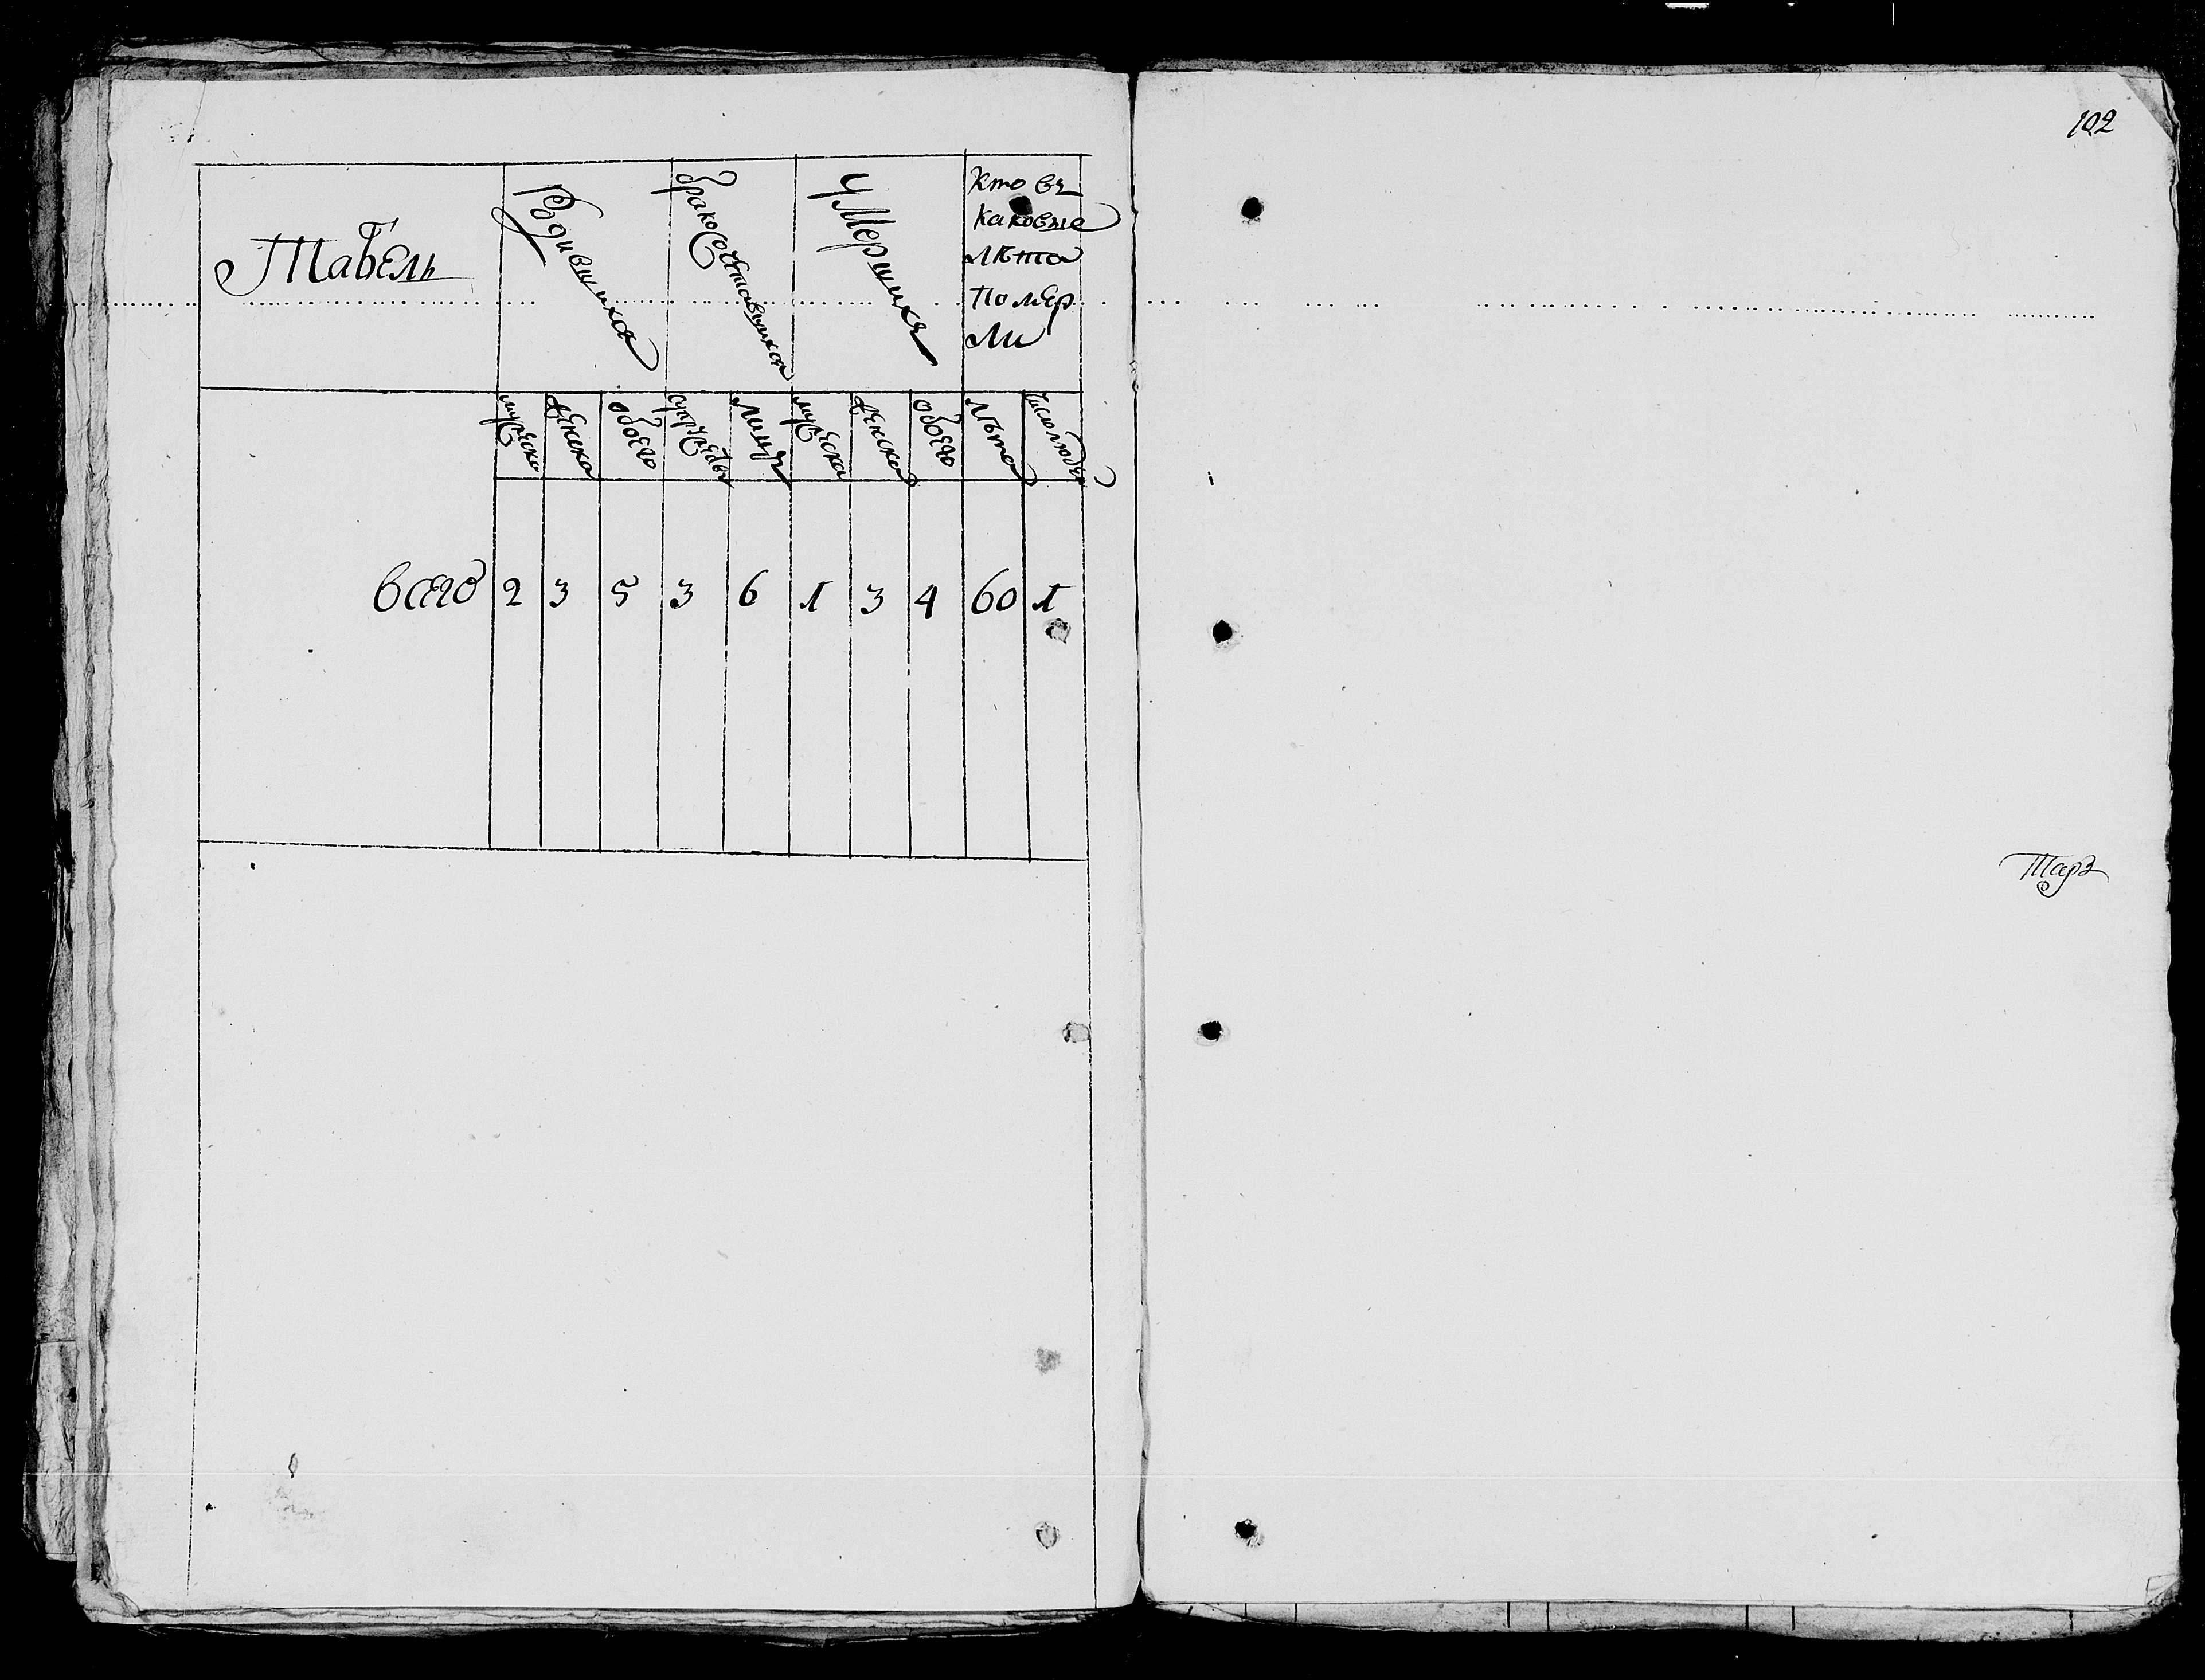 Табель
Родившихся
бракосочетавшихся
умершихъ
Кто въ
каковые
лѣта
помер
ли
мужеска
женска
обоего
супружествъ
лицъ
мужеска
женска
обоего
лѣта
число людей
всего 2 3 5 3 6 1 3 4 60 1
102